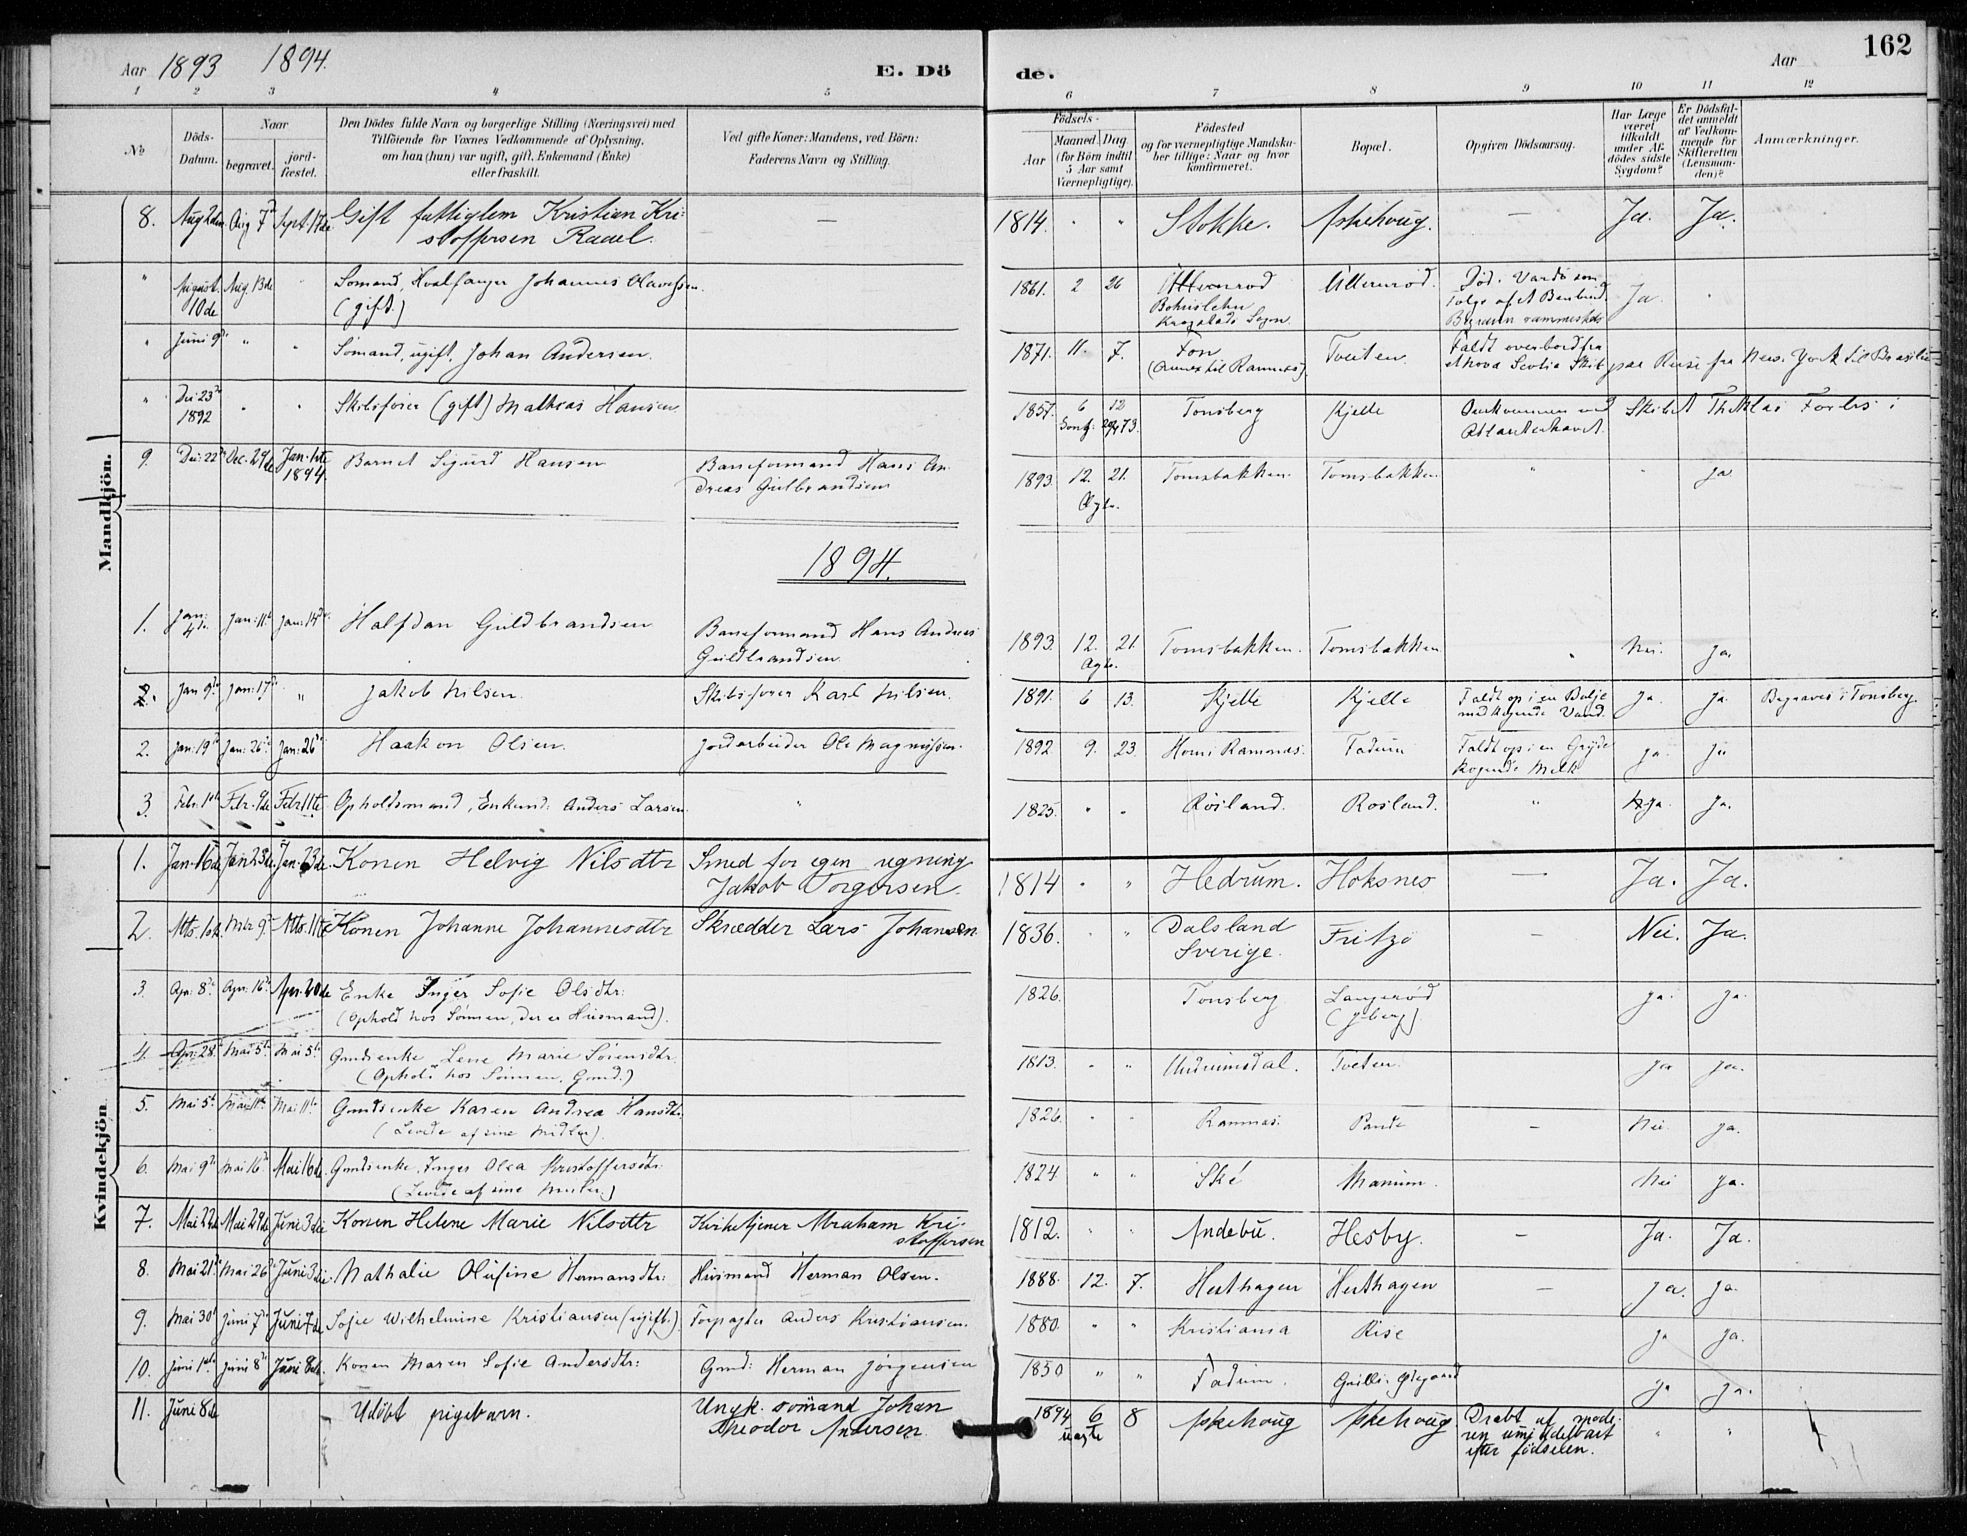 Aar 1893 1894. E. Dö de. Aar 162
1 2 3 4 5 6 7 8 9 10 11 12
№ Döds-Datum. Naar begravet. jord-fæstet. Den Dödes fulde Navn og borgerlige Stilling (Næringsvei) med Tilföiende for Voxnes Vedkommende af Oplysning, om han (hun) var ugift, gift, Enkemand (Enke) eller fraskilt. Ved gifte Koner: Mandens, ved Börn: Faderens Navn og Stilling. Födsels- Aar Maaned. Dag (for Börn indtil 5 Aar samt Værnepligtige). Födested og for værnepligtige Mandskaber tillige: Naar og hvor konfirmeret. Bopæl. Opgiven Dödsaarsag. Har Læge været tilkaldt under Afdödes sidste Sygdom? Er Dödsfaldet anmeldt af Vedkommende for Skifteretten (Lensmanden)? Anmærkninger.
Mandkjön.
8. Aug 2den Aug 7de Sept. 17de Gift fattiglem Kristian Kri- — 1814. " " Stokke. Askehoug. — Ja. Ja.
stoffersen Raael.
" August 10de Aug. 13de Sømand, Hvalfanger Johannes Olavessen (gift.) 1861. 2 26 Bohuslehn Krogstads Sogn. Ullernrød. Død i Vardø som Følge af et Benbrud. Begraven sammesteds Ja
" Juni 9de " " Sømand, ugift, Johan Andersen. 1871. 11. 7. Fon (Annex til Ramnes) Tveiten. Faldt overbord fra et Nova Scotia Skib paa Reise fra New York til Brasilien
" Dec 23de 1892 " " Skibsfører (gift) Mathias Hansen 1851. 6 12 Tønsberg Kjelle Omkommen med Skibet Forbes i Atlanterhavet.
9. Dec: 22de Dec. 29de Jan. 1ste 1894. Barnet Sigurd Hansen Baneformand Hans An-
dreas Gulbrandsen 1893. 12. 21. Ægte. Tomsbakken Tomsbakken " " ja
1894.
1. Jan: 4de Jan: 11te Jan: 14de Halfdan Guldbrandsen Baneformand Hans Andreas
Guldbrandsen 1893. 12. 21. Ægte. Tomsbakken. Tomsbakken " Nei. ja.
2. Jan 9de Jan: 17de " Jakob Nilsen. Skibsfører Karl Nilsen. 1891. 6 13. Kjelle Kjelle Faldt op i en Balje med kogende Vand. ja. ja. Begraves i Tønsberg
2. Jan: 19de Jan: 26de Jan: 26de Haakon Olsen. Jordarbeider Ole Magnussen. 1892 9. 23 Ramnes. Fadum Faldt op i en Gryde kogende Melk ja. ja
3. Febr. 1ste Febr. 9de Febr. 11te Opholdsmand, Enkemd: Anders Larsen " 1825. " " Røsland. Røsland. " ja. ja.
Kvindekjön
1. Jan. 16de Jan 23de Jan. 23de Konen Helvig Nilsdtr Smed for egen regning
Jakob Torgersen. 1814 " " Hedrum. Hoksnes — Ja. Ja.
2. Mts. 1ste Mts 9de Mts. 11te Konen Johanne Johannesdtr Skrædder Lars Johansen 1836. " " Dalsland Sverige. Fritzø — Nei. Ja.
3. Apr: 8de Apr: 16de Apr. 20de Enke Inger Sofie Olsdtr:
(Ophold hos Sønnen, der er Husmand). 1826. Tønsberg Langerød (J-berg) ja. ja.
4. Apr: 28de Mai 5te Mai 5te Gmdsenke Lene Marie Sørensdtr.
(Ophold hos Sønnen, Gmd.) 1813. " " Undrumsdal. Tveten. ja ja.
5. Mai 5te Mai 11te Mai 11te Gmdsenke Karen Andrea Hansdtr.
(Levede af sine Midler). 1826. " " Ramnæs. Pande — Nei ja.
6. Mai 9de Mai 16de Mai 16de Gmdsenke Inger Olea Kristoffersdtr.
(Levede af sine Midler.) 1824. " " Ske Manum. Nei ja.
7. Mai 22de Mai 29de Juni 3die Konen Helene Marie Nilsdtr Kirketjener Abraham Kri-
stoffersen 1812. " " Andebu. Hesby. — Ja. Ja.
8. Mai 21de Mai 26de Juni 3die Nathalie Olufine Hermansdtr: Husmand Herman Olsen. 1888. 12. 7. Hesthagen Hesthagen — ja. ja.
9. Mai 30te Juni 7de Juni 7de Sofie Wilhelmine Kristiansen (ugift.) Forpagter Anders Kristiansen. 1880. " " Kristiania Rise ja ja.
10. Juni 1ste Juni 8de Juni 8de. Konen Maren Sofie Andersdtr: Gmd: Herman Jørgensen 1850 " " Fadum. Ødegaard ja ja.
11. Juni 8de Udøbt pigebarn. Ungk. sømand Johan
Theodor Andersen 1894 6 8 uægte Askehoug Askehoug Dræbt af moderen umiddelbart efter fødselen. " "